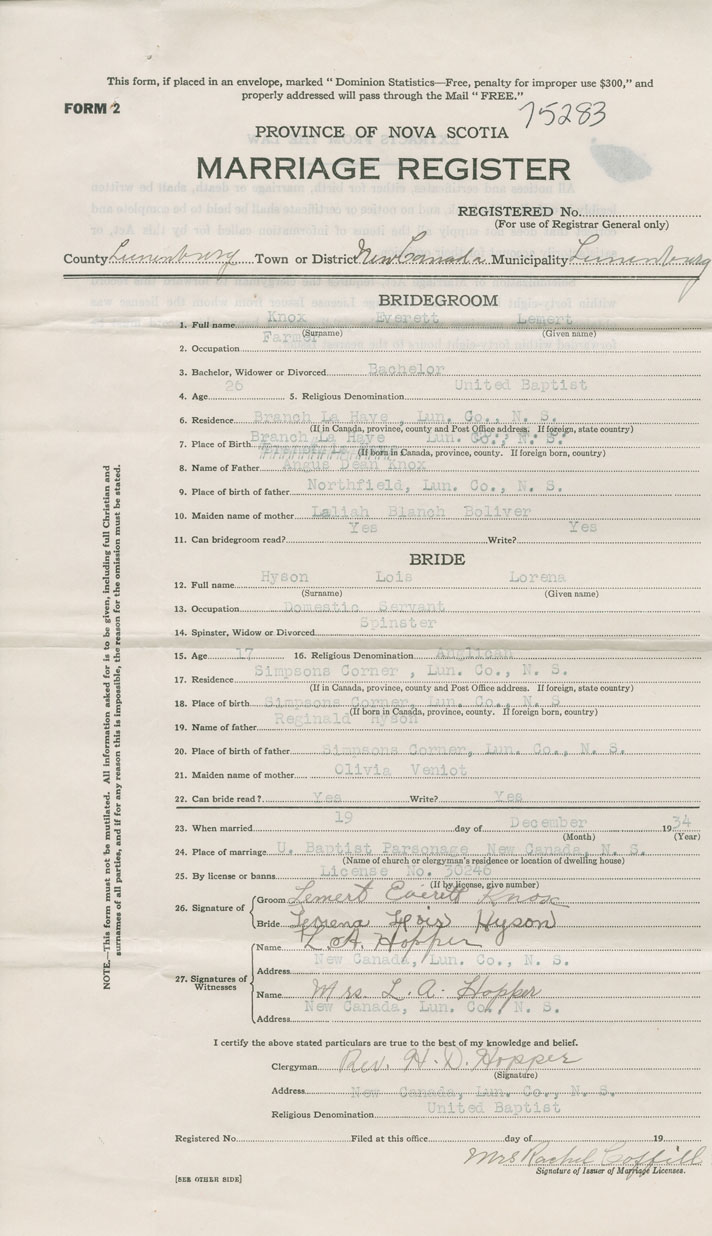 This form, if placed in an envelope, marked " Dominion Statistics—Free, penalty for improper use $300," and
properly addressed will pass through the Mail " FREE."
FORM 2
75283
PROVINCE OF NOVA SCOTIA
MARRIAGE REGISTER
REGISTERED No.
(For use of Registrar General only)
County Lunenburg Town or District New Canada Municipality Lunenburg
BRIDEGROOM
1. Full name Knox Everett Lemert
(Surname) (Given name)
2. Occupation Farmer
3. Bachelor, Widower or Divorced Bachelor
4. Age 26 5. Religious Denomination United Baptist
6. Residence Branch La Have , Lun. Co., N. S.
(If in Canada, province, county and Post Office address. If foreign, state country)
7. Place of Birth Branch La Have Lun. Co., N. S.
(If born in Canada, province, county. If foreign born, country)
8. Name of Father Angus Dean Knox
9. Place of birth of father Northfield, Lun. Co., N. S.
10. Maiden name of mother Laliah Blanch Boliver
11. Can bridegroom read? Yes Write? Yes
BRIDE
12. Full name Hyson Lois Lorena
(Surname) (Given name)
13. Occupation Domestic Servant
14. Spinster, Widow or Divorced Spinster
15. Age 17 16. Religious Denomination Anglican
17. Residence Simpsons Corner , Lun. Co., N. S.
(If in Canada, province, county and Post Office address. If foreign, state country)
18. Place of birth Simpsons Corner, Lun. Co., N. S
(If born in Canada, province, county. If foreign born, country)
19. Name of father Reginald Hyson
20. Place of birth of father Simpsons Corner, Lun. Co., N. S.
21. Maiden name of mother Olivia Veniot
22. Can bride read? Yes Write? Yes
23. When married 19 day of December 1934
(Month) (Year)
24. Place of marriage U. Baptist Parsonage New Canada, N. S.
(Name of church or clergyman's residence or location of dwelling house)
25. By license or banns License No. 30246
(If by license, give number)
26. Signature of Groom Lemert Everett Knox
Bride Lorena Lois Hyson
27. Signatures of Witnesses Name L. A. Hopper
Address New Canada, Lun. Co., N. S.
Name Mrs. L. A. Hopper
Address New Canada, Lun. Co., N. S.
I certify the above stated particulars are true to the best of my knowledge and belief.
Clergyman Rev. H. D. Hopper
(Signature)
Address New Canada, Lun. Co., N. S.
Religious Denomination United Baptist
Registered No. Filed at this office day of 19
Mrs Rachel Coffill
Signature of Issuer of Marriage Licenses.
[SEE OTHER SIDE]
NOTE.—This form must not be mutilated. All information asked for is to be given, including full Christian and
surnames of all parties, and if for any reason this is impossible, the reason for the omission must be stated.